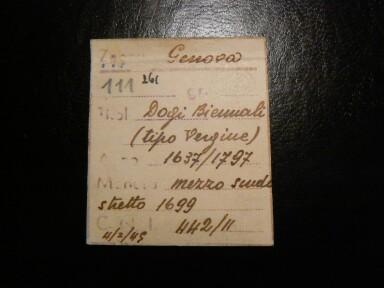 Zecca Genova
111 261
Tipi Dogi Biennali
(tipo Vergine)
Anno 1637/1797
Moneta mezzo scudo
stretto 1699
C.N.I. 442/11
11/2/49